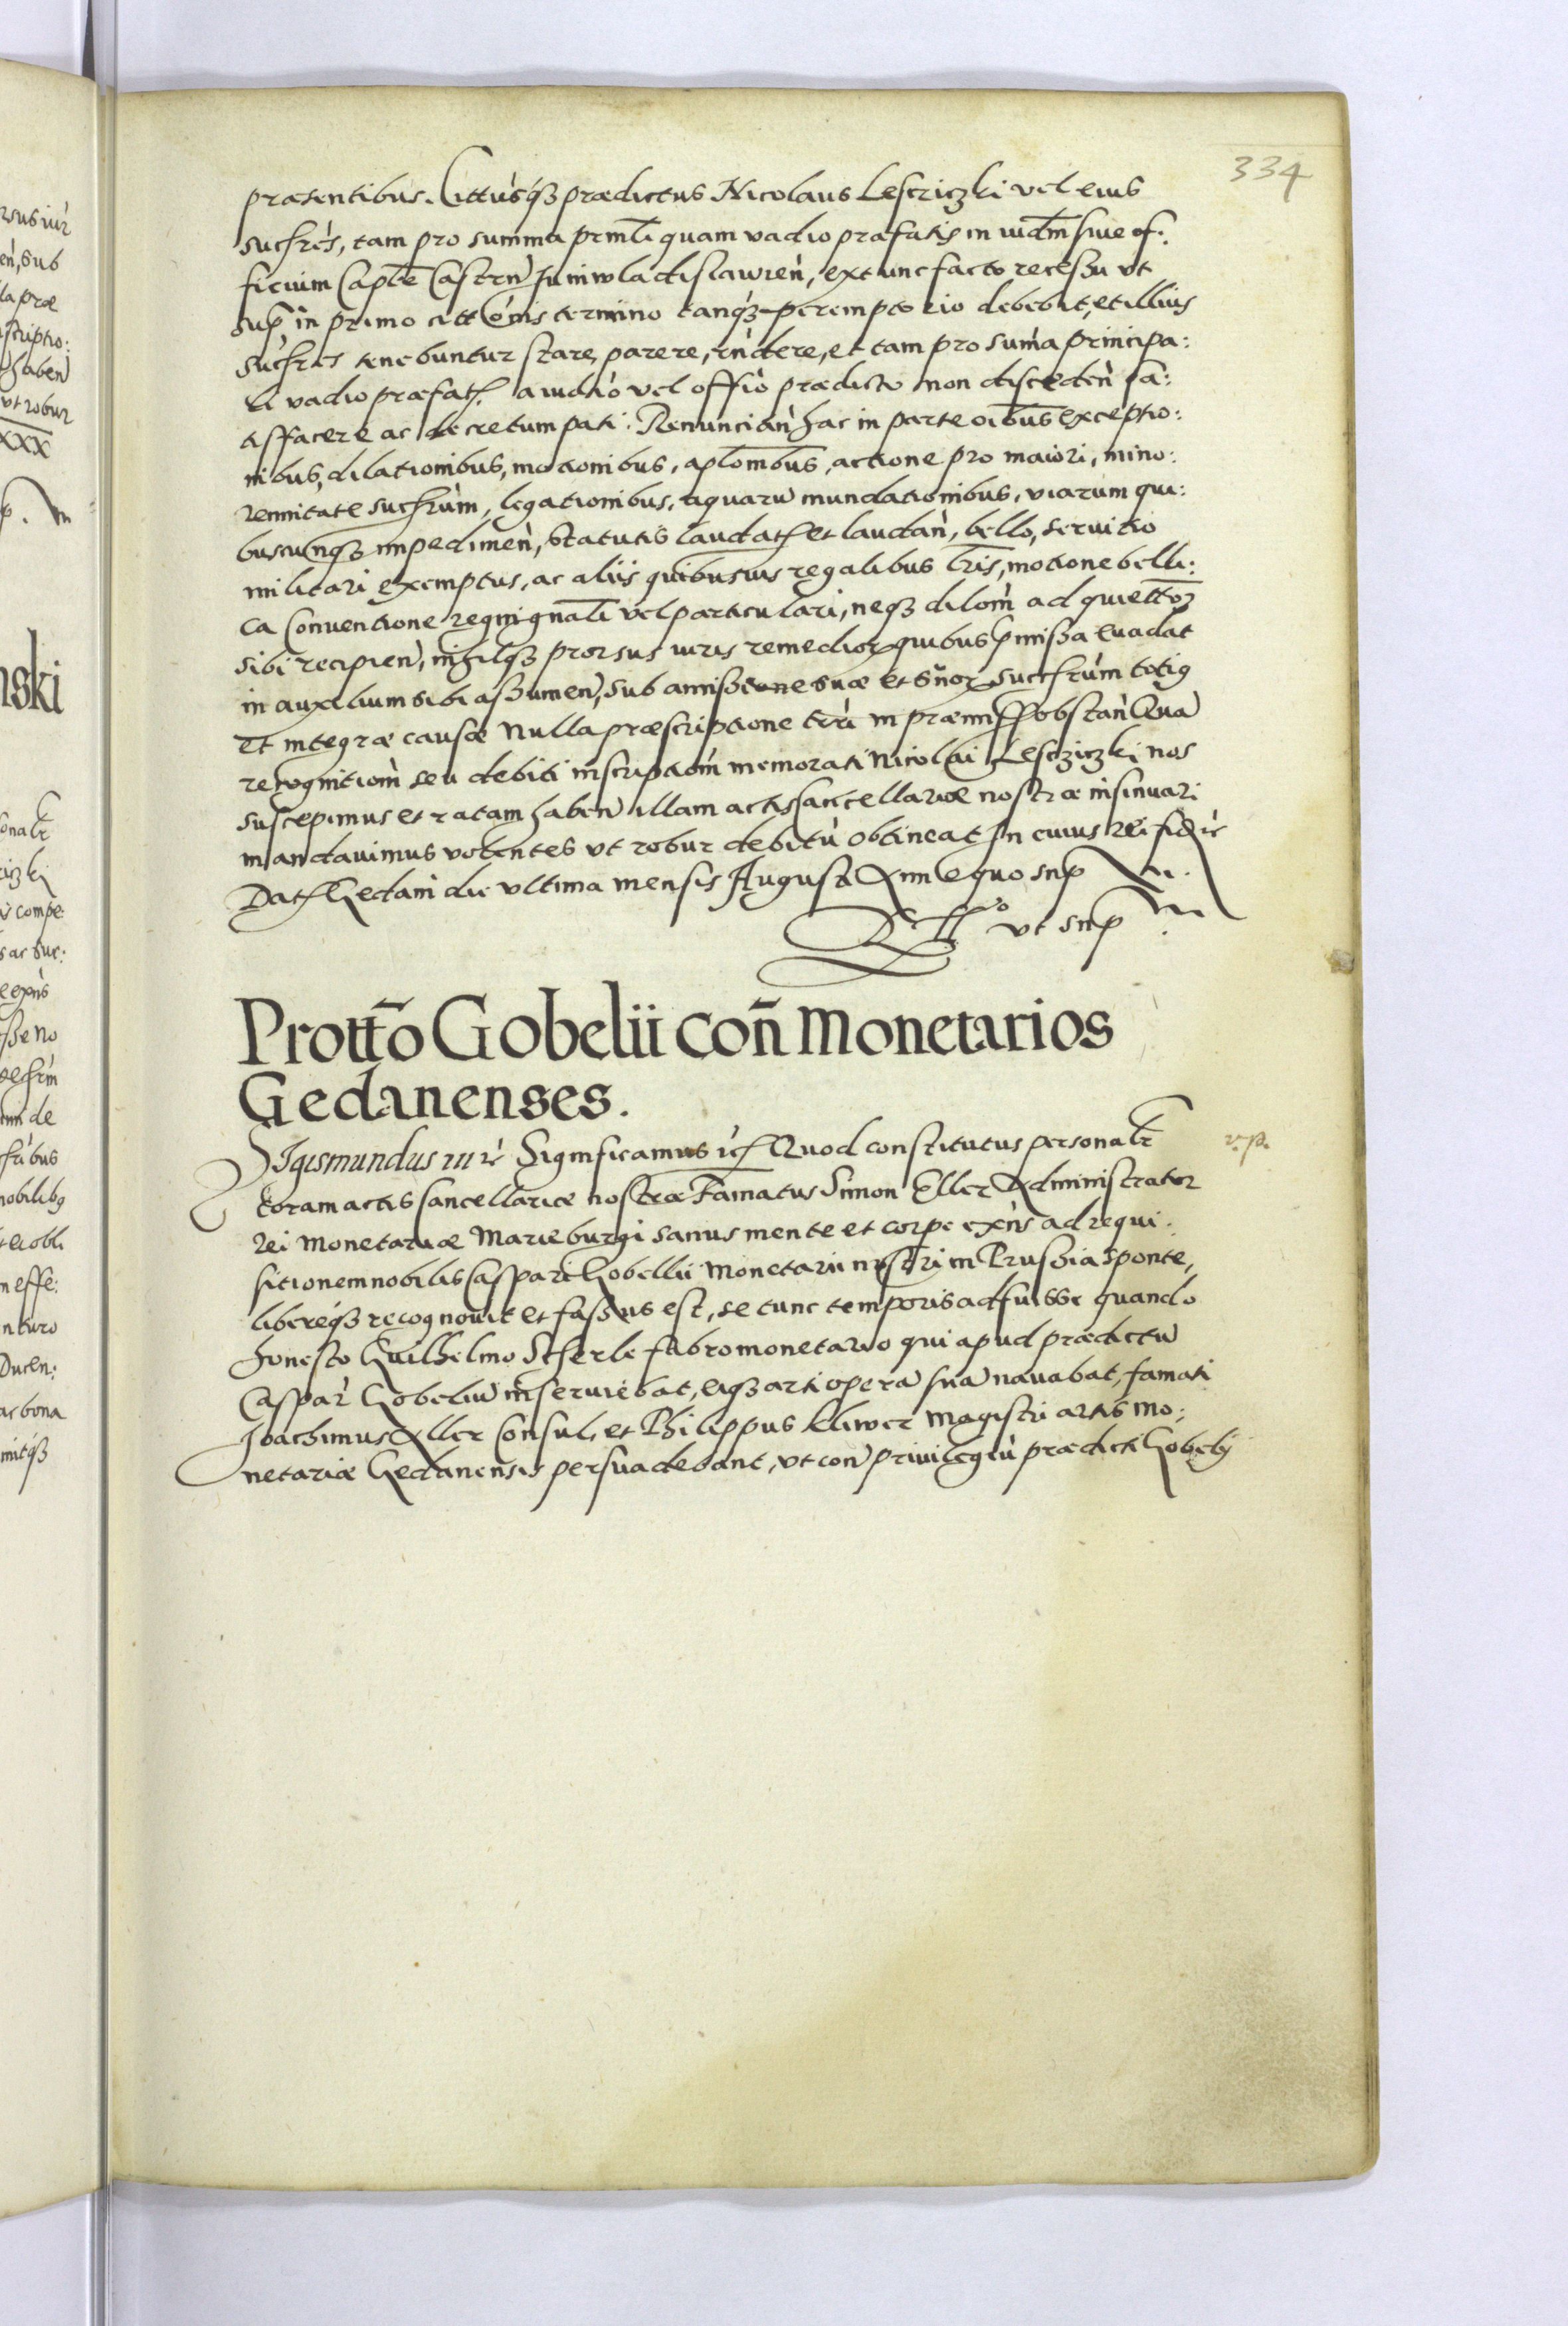 334
præsentibus. Cittusq₃ prædictus Nicolaus Lescziczki vel eius
succr̃es, tam pro summa prinćli quam vadio præfatis in iudm̃ siue of:
ficium Caplẽ Castren̄ Juniwladislawien̄, ex tunc facto recessu vt
sup̱ in primo citt̃onis termino tanq₃ peremptorio debebit, et illius
succr̃es tenebuntur stare, parere, rñdere, et tam pro sum̄a principa:
li vadio præfat̃. a iudio vel offio prædicto non disceden̄ sa:
tisfacere ac decretum pati. Renuncian̄ hac in parte oibus exceptio:
nibus, dilationibus, motionibus, aplõnibus, actione pro maiori, mino:
rennitate succr̃um, legationibus, aquarū inundationibus, viarum qui:
buscunq₃ impedimen̄, statutis laudat̃ et laudan̄, bello, seruitio
militari exemptus, ac aliis quibusuis regalibus lr̃is, motione belli:
ca Conuentione regni gnãli vel particulari, neq₃ dilõm ad quiett̃oz
sibi recipien̄, nihilq₃ prorsus iuris remedior̃ quibus p̱missa euadat
in auxilium sibi assumen̄, sub amissione suæ et s̃uor̃ succr̃um totiꝰ
et integræ causæ Nulla præscriptione tr̃ri in præmiss̃ obstan̄ Quā
recognitiõm seu debiti inscriptõm memorati Nicolai Lescziczki nos
suscepimus et ratam haben̄ illam actis Cancellariæ nostræ insinuari
mandauimus volentes vt robur debitū obtineat In cuius rei fid̃ ꝛc̃
Dat̃ Gedani die vltima mensis Augusti Anno quo sup̱
Rtt̃o vt sup̱
Prott̃o Gobelii con̄ Monetarios
Gedanenses.
Sigismundus ꝛc̃ Significamus ꝛc̃ Quod constitutus personalr̃
v.p.
coram actis Cancellariæ nostræ Famatus Simon Eller Administrator
rei Monetariæ Marieburgi sanus mente et corpe exñs ad requi:
sitionem nobilis Caspari Gobellii Monetarii nostri in Prussia sponte,
libereq₃ recognouit et fassus est, se tunc temporis adfuisse quando
honesto Guilhelmo Scherle fabro monetario qui apud prædictū
Caspar̄ Gobeliū inseruiebat, eiq₃ arti operā suā nauabat, famati
Joachimus Eller Consul, et Philippus Kliwer magistri artis mo:
netariæ Gedanensis persuadebant, vt con̄ priuilegiū prædicti Gobelij